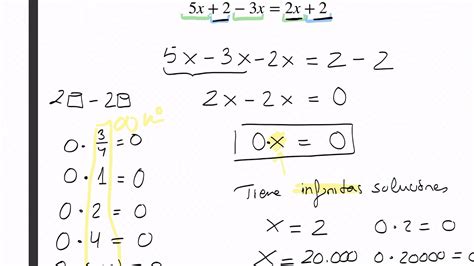 5x + 2 − 3x = 2x + 2
5x − 3x − 2x = 2 − 2
2□ − 2□
2x − 2x = 0
∞ nº
0 · 3/4 = 0
0 · x = 0
0 · 1 = 0
Tiene infinitas soluciones
0 · 2 = 0
x = 2 0 · 2 = 0
0 · 4 = 0
x = 20.000 0 · 20000 = 0